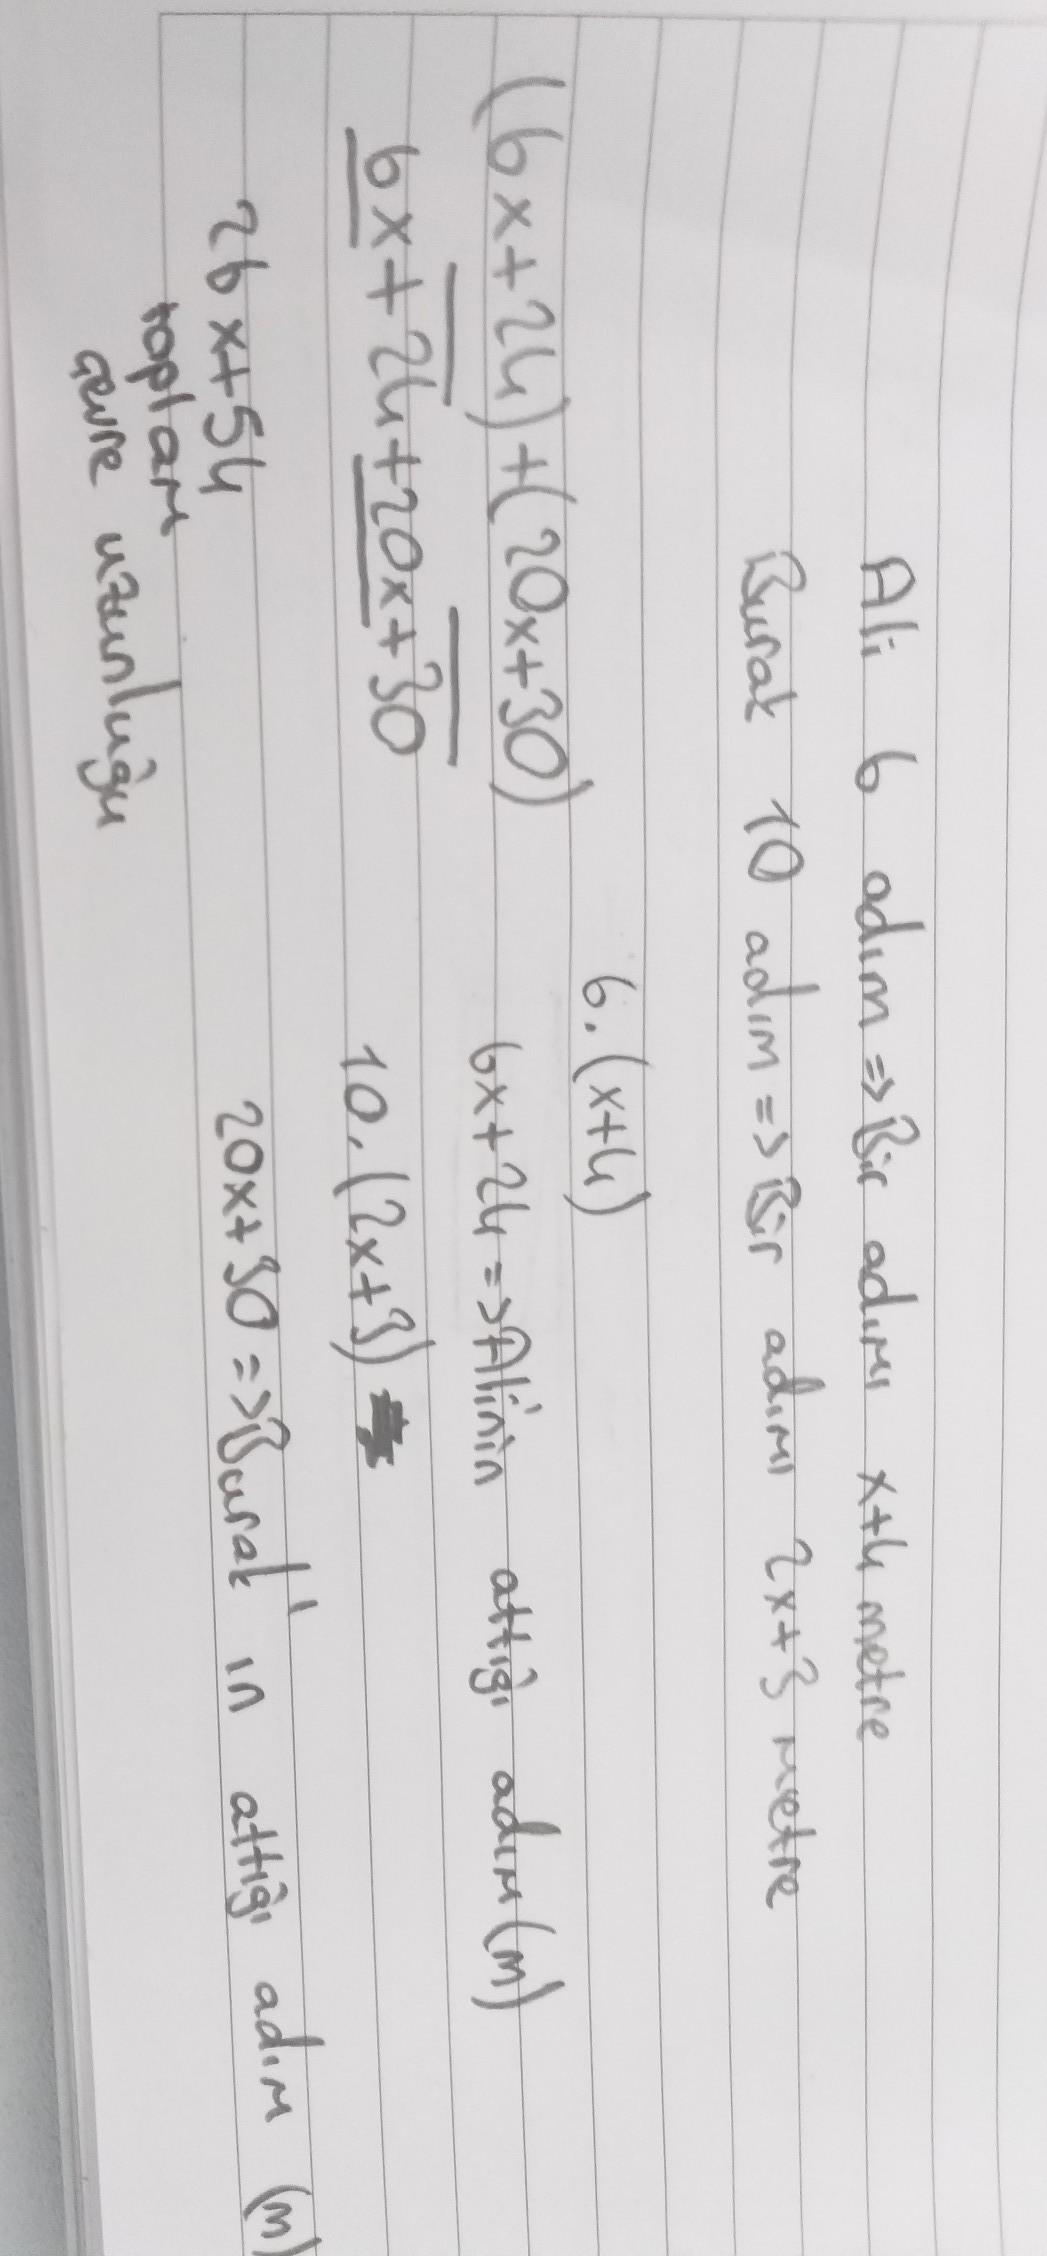 Ali 6 adım => Bir adımı x+4 metre
Burak 10 adım => Bir adımı 2x+3 metre
6.(x+4)
(6x+24)+(20x+30)
6x+24 => Alinin attığı adım (m)
6x+24+20x+30
10.(2x+3)
26x+54
20x+30 => Burak'ın attığı adım (m)
toplam
çevre uzunluğu